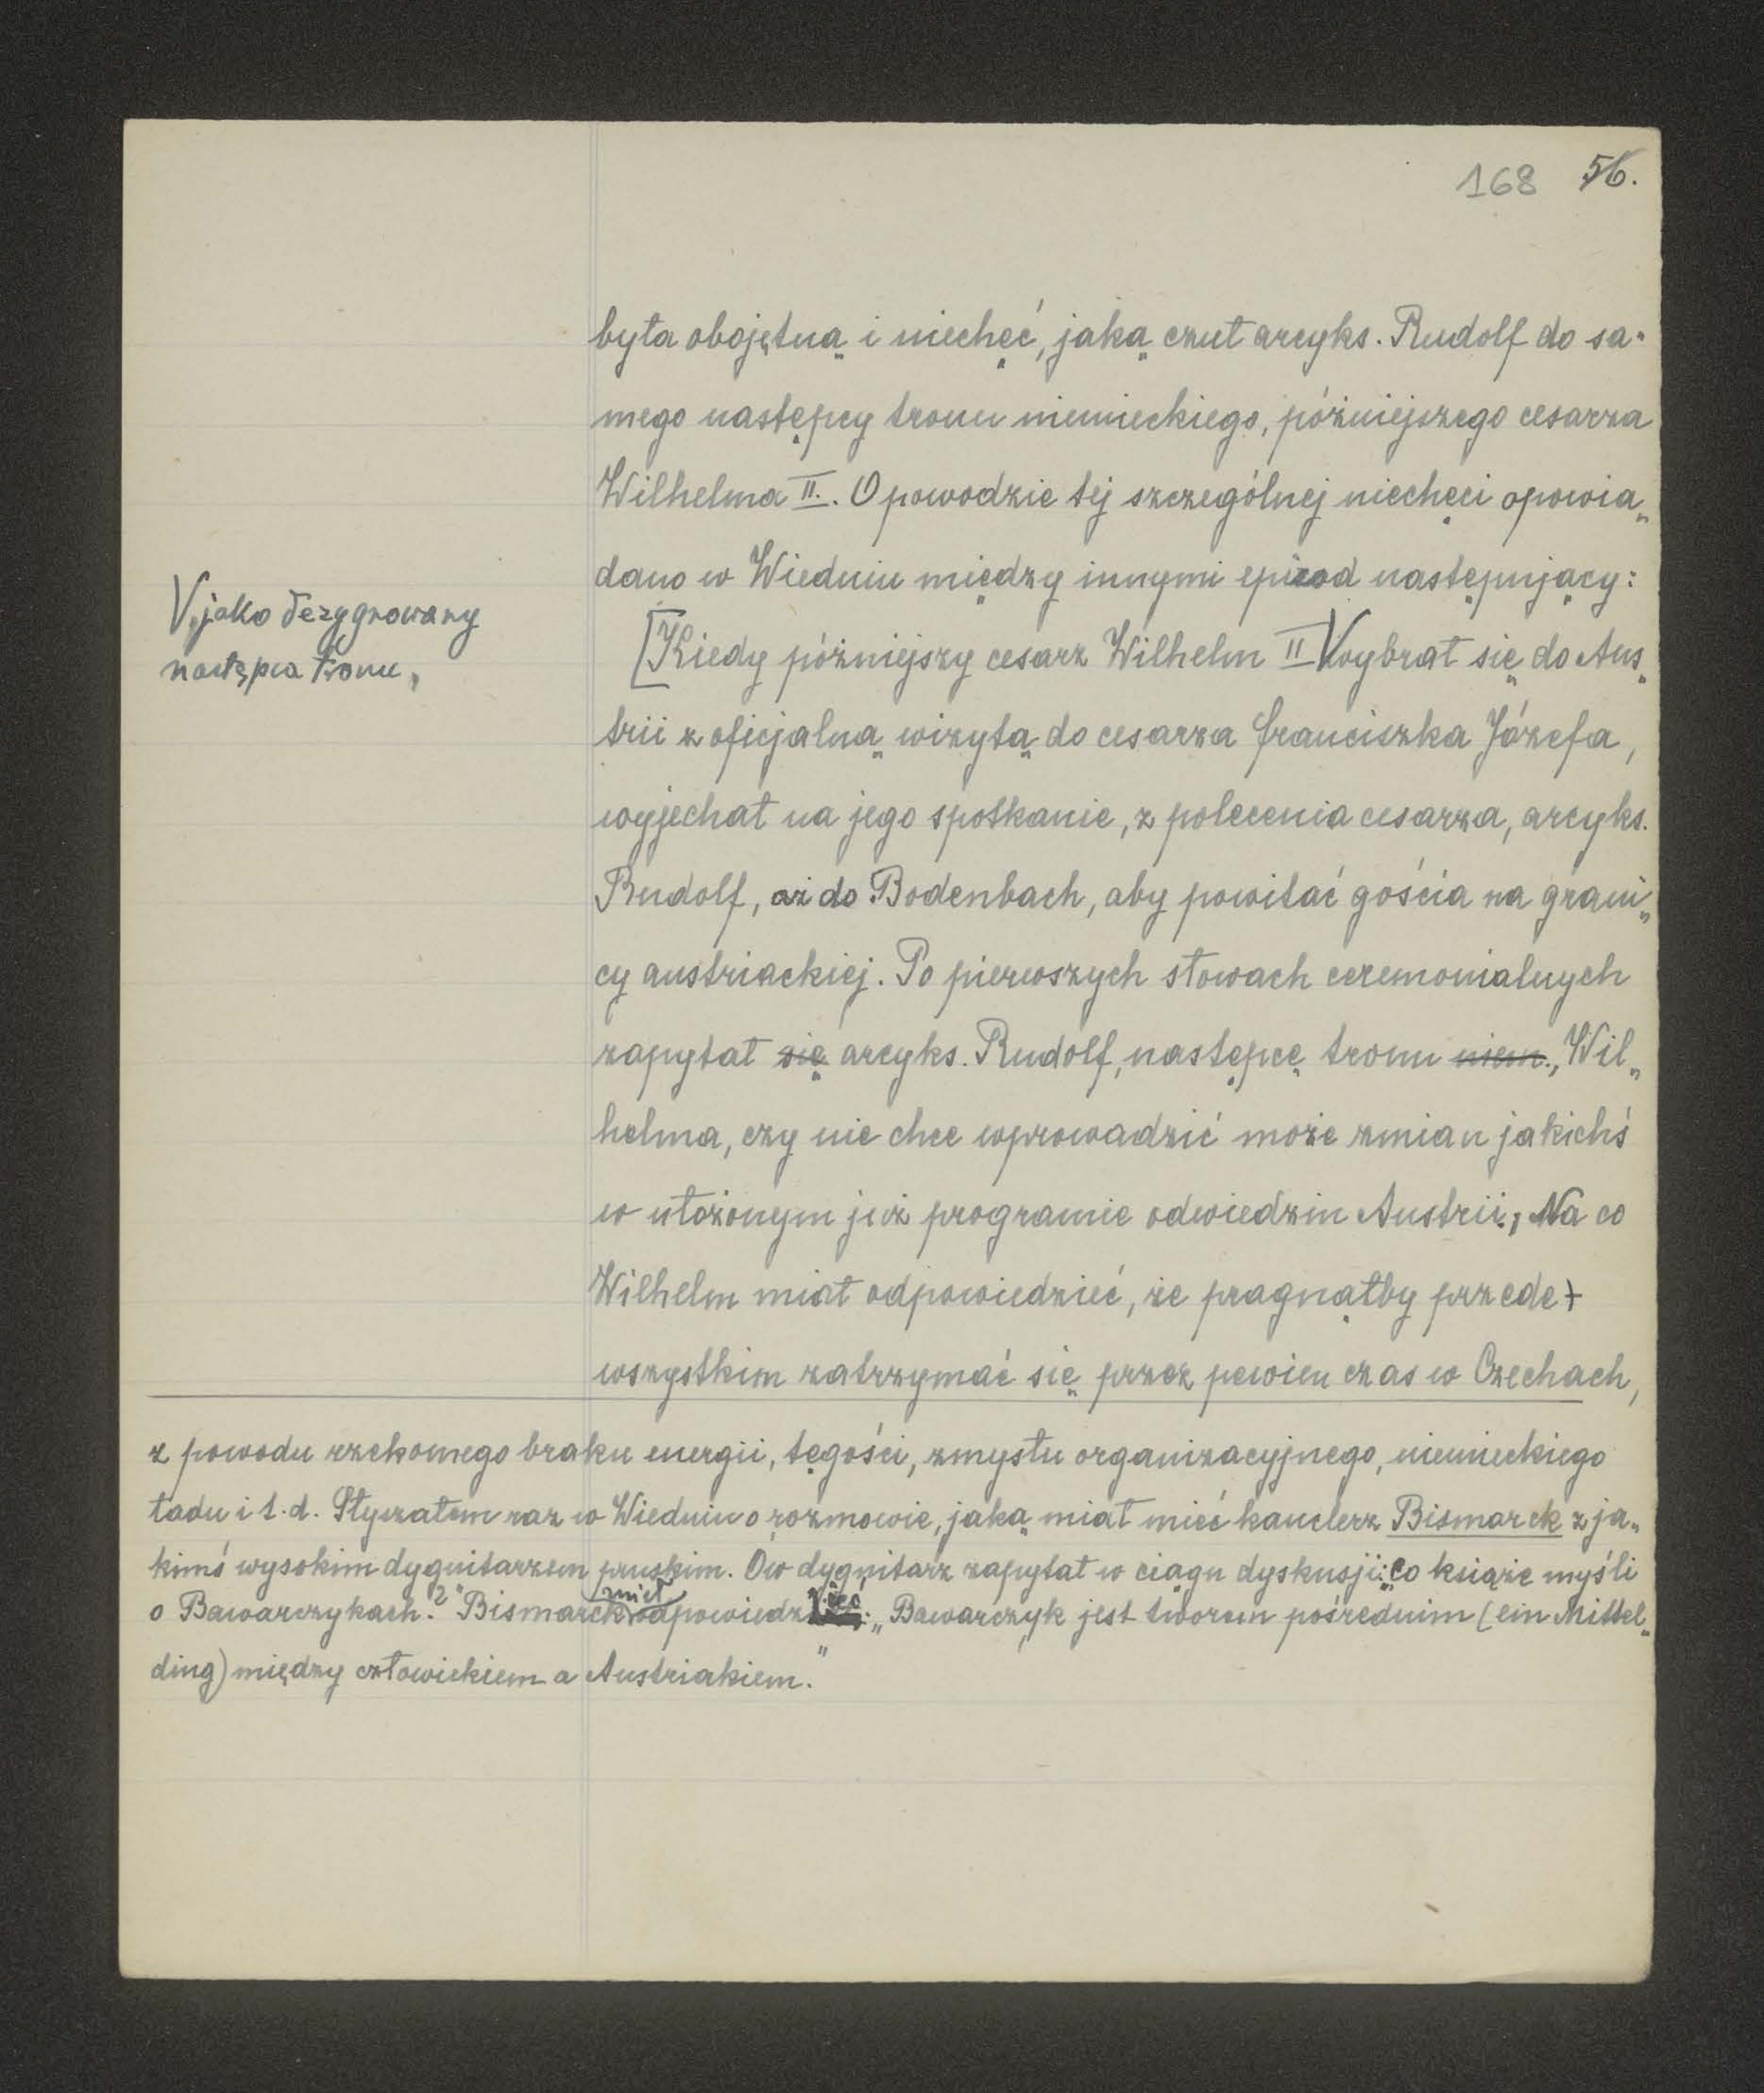 168 56.
była obojętną i niechęć, jaką czuł arcyks. Rudolf do sa„
mego następcy tronu niemieckiego, późniejszego cesarza
Wilhelma II. O powodzie tej szczególnej niechęci opowia„
dano w Wiedniu między innymi epizod następujący:
V, jako dezygnowany
następca tronu,
[Kiedy późniejszy cesarz Wilhelm II V wybrał się do Aus„
trii z oficjalną wizytą do cesarza Franciszka Józefa,
wyjechał na jego spotkanie, z polecenia cesarza, arcyks.
Rudolf, aż do Bodenbach, aby powitać gościa na grani„
cy austriackiej. Po pierwszych słowach ceremonialnych
zapytał się arcyks. Rudolf, następcę tronu niem., Wil„
helma, czy nie chce wprowadzić może zmian jakichś
w ułożonym już programie odwiedzin Austrii, Na co
Wilhelm miał odpowiedzieć, że pragnąłby przede+
wszystkim zatrzymać się przez pewien czas w Czechach,
z powodu rzekomego braku energii, tęgości, zmysłu organizacyjnego, niemieckiego
ładu i t.d. Słyszałem raz w Wiedniu o rozmowie, jaką miał mieć kanclerz Bismarck z ja„
kimś wysokim dygnitarzem pruskim. Ów dygnitarz zapytał w ciągu dyskusji: „co książę myśli
o Bawarczykach?" Bismarck miał odpowiedzieć: „Bawarczyk jest tworem pośrednim (ein Mittel„
ding) między człowiekiem a Austriakiem."